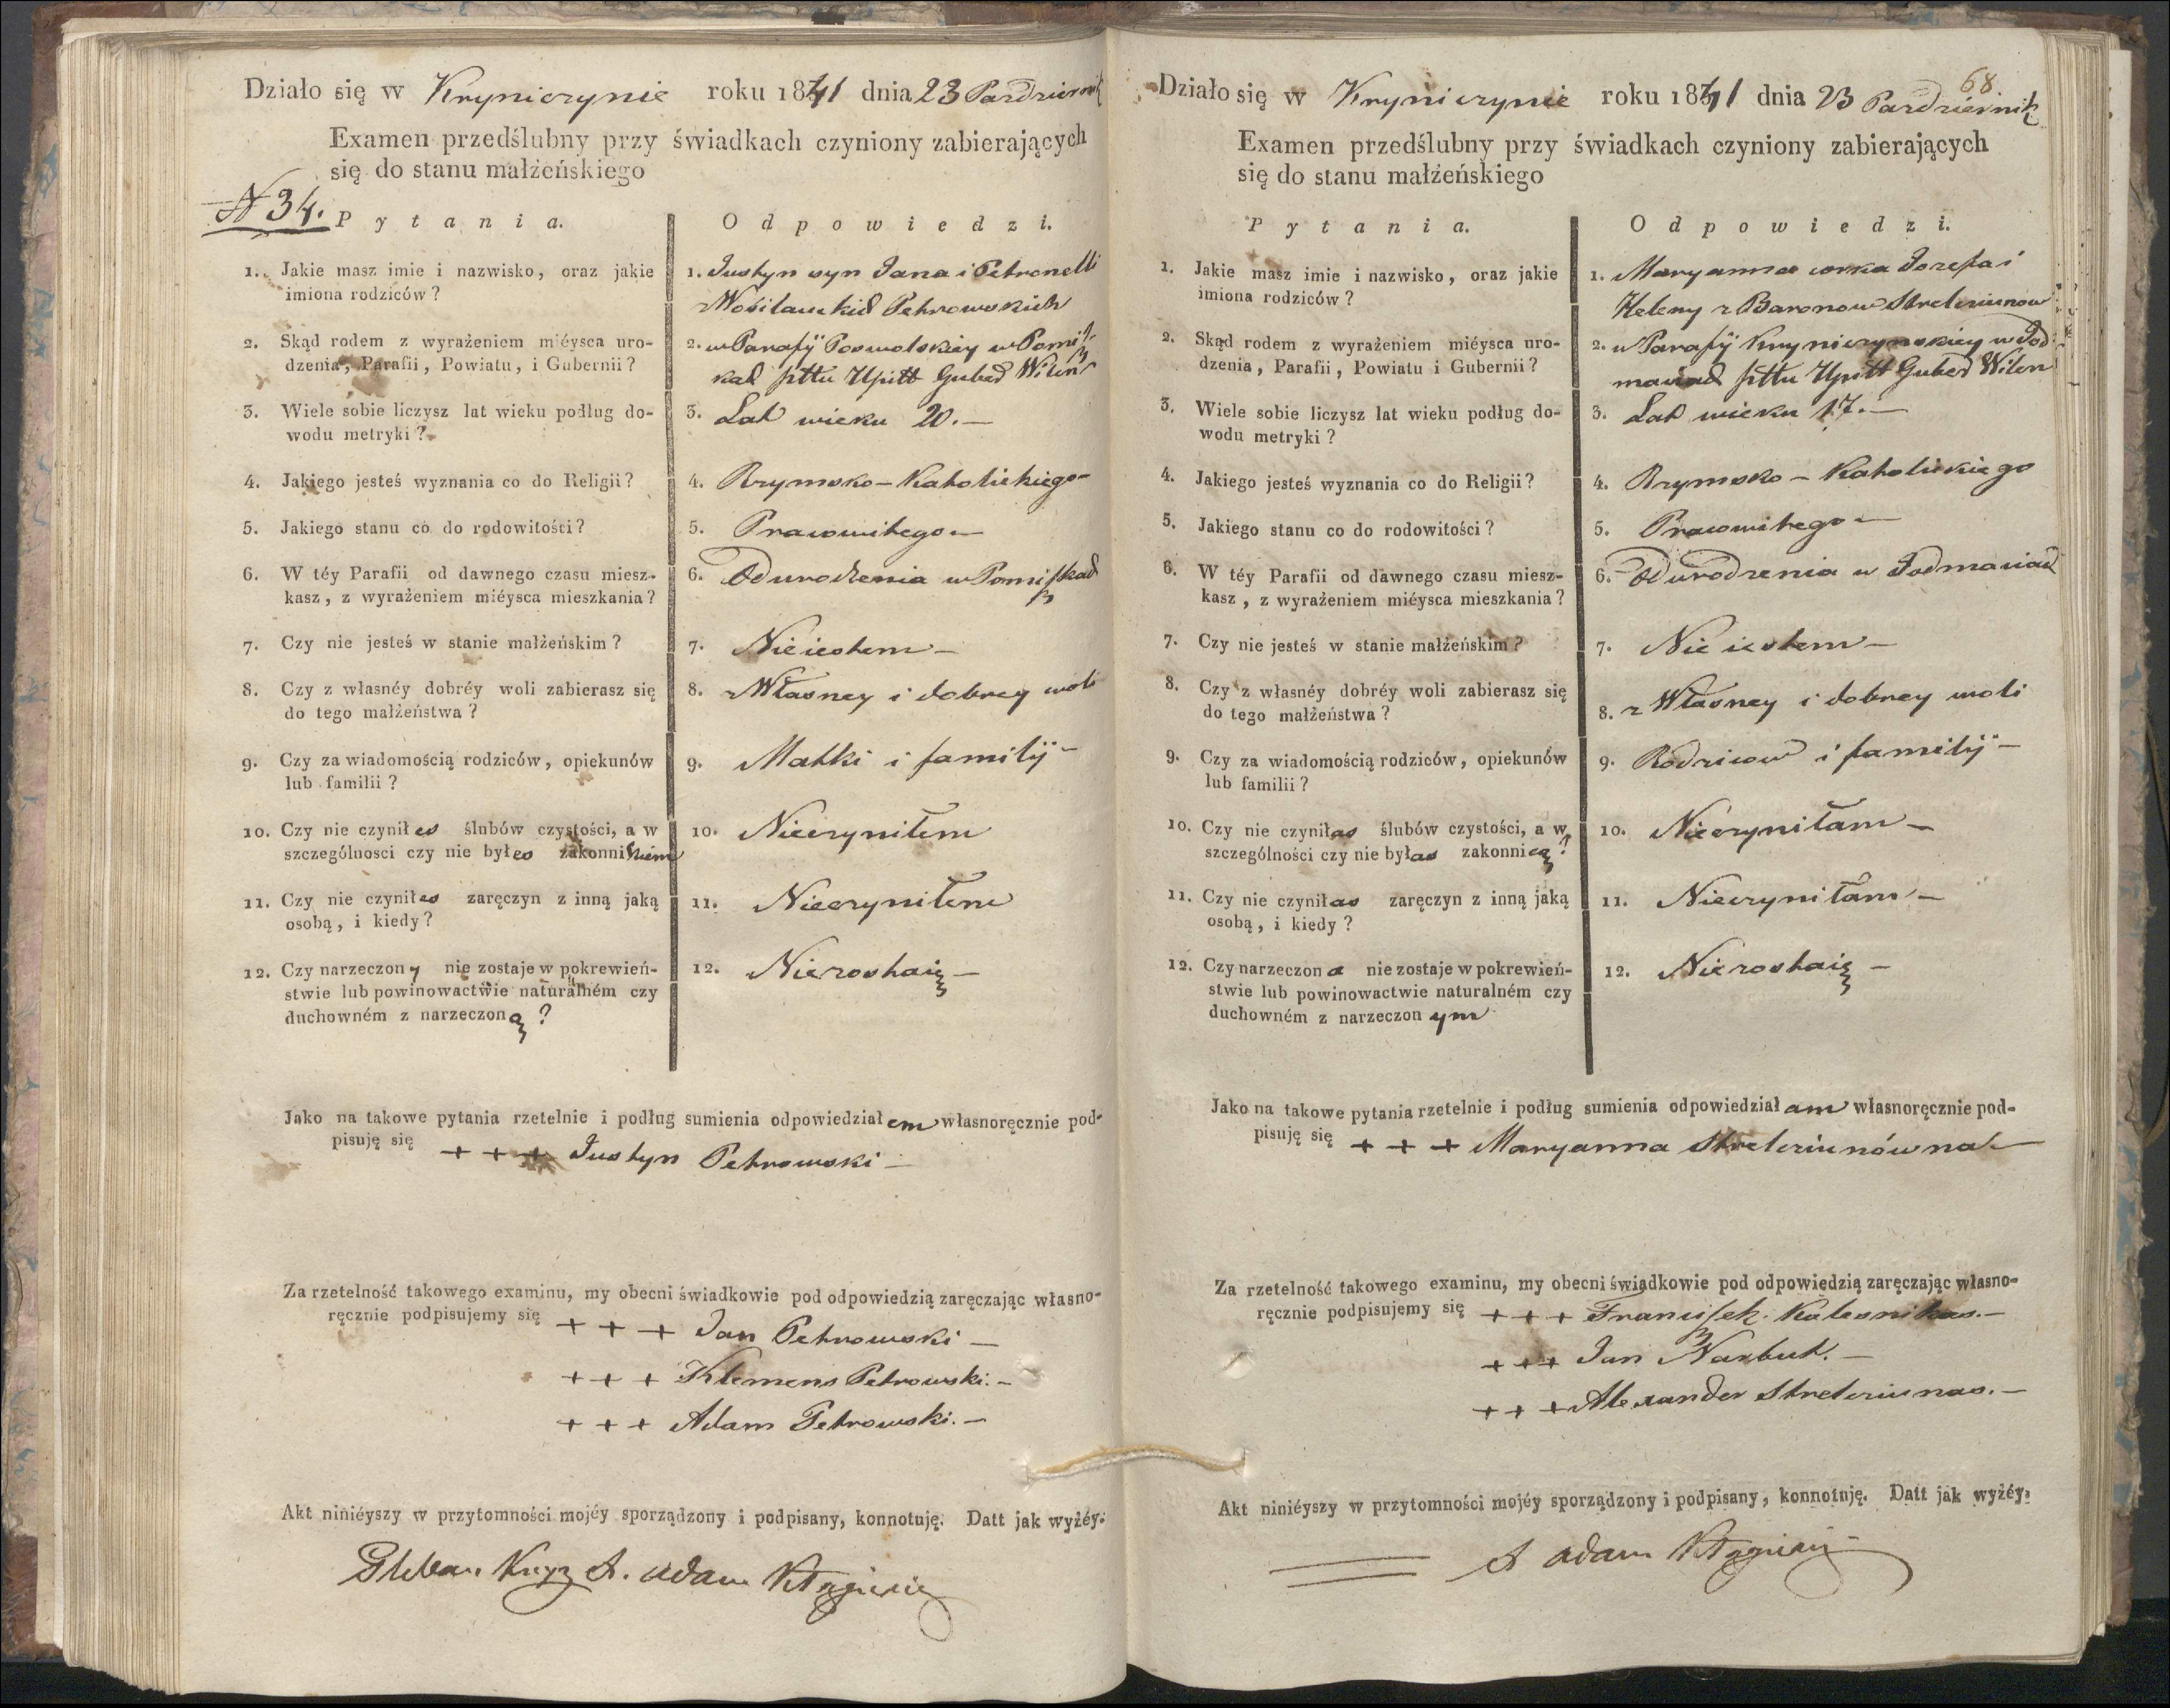 Działo się w Kryniczynie roku 1841 dnia 23 Pazdziernik
Examen przedślubny przy świadkach czyniony zabierających
się do stanu małżeńskiego
N 34.
Pytania. Odpowiedzi.
1. Jakie masz imie i nazwisko, oraz jakie
imiona rodziców?
1. Justyn syn Jana i Petronelli
Petrowskich
2. Skąd rodem z wyrażeniem miéysca uro-
dzenia, Parafii, Powiatu, i Gubernii?
2. w Parafij Poswolskiey w
Upitt Guber Wilen
3. Wiele sobie liczysz lat wieku podług do-
wodu metryki?
3. Lat wieku 20.—
4. Jakiego jesteś wyznania co do Religii?
4. Rzymsko-Katolickiego-
5. Jakiego stanu co do rodowitości?
5. Prawowitego—
6. W téy Parafii od dawnego czasu miesz-
kasz, z wyrażeniem miéysca mieszkania?
6. Od urodzenia w
7. Czy nie jesteś w stanie małżeńskim?
7. Nie iestem—
8. Czy z własnéy dobréy woli zabierasz się
do tego małżeństwa?
8. z Własney i dobrey woli
9. Czy za wiadomością rodziców, opiekunów
lub familii?
9. Matki i familij—
10. Czy nie czynił es ślubów czystości, a w
szczególnosci czy nie był es zakonnikiem
10. Nieczyniłem
11. Czy nie czynił es zaręczyn z inną jaką
osobą, i kiedy?
11. Nieczyniłem
12. Czy narzeczon y nie zostaje w pokrewień-
stwie lub powinowactwie naturalném czy
duchowném z narzeczon ą?
12. Niezostaię—
Jako na takowe pytania rzetelnie i podług sumienia odpowiedział em własnoręcznie pod-
pisuję się + + + Justyn Petrowski—
Za rzetelność takowego examinu, my obecni świadkowie pod odpowiedzią zaręczając własno-
ręcznie podpisujemy się + + + Jan Petrowski—
+ + + Klemens Petrowski.—
+ + + Adam Petrowski.—
Akt niniéyszy w przytomności mojéy sporządzony i podpisany, konnotuję. Datt jak wyżéy.
Adam
68
Działo się w Kryniczynie roku 1841 dnia 23 Pazdziernik
Examen przedślubny przy świadkach czyniony zabierających
się do stanu małżeńskiego
Pytania. Odpowiedzi.
1. Jakie masz imie i nazwisko, oraz jakie
imiona rodziców?
1. Maryanna corka Jozefa i
Heleny z Baronow Strelcziunow
2. Skąd rodem z wyrażeniem miéysca uro-
dzenia, Parafii, Powiatu i Gubernii?
2. w Parafij Kryniczynskiey w Jod
maniach Upitt Guber Wilen
3. Wiele sobie liczysz lat wieku podług do-
wodu metryki?
3. Lat wieku 17.—
4. Jakiego jesteś wyznania co do Religii?
4. Rzymsko-Katolickiego
5. Jakiego stanu co do rodowitości?
5. Prawowitego—
6. W téy Parafii od dawnego czasu miesz-
kasz, z wyrażeniem miéysca mieszkania?
6. Od urodzenia w Jodmaniach
7. Czy nie jesteś w stanie małżeńskim?
7. Nie iestem—
8. Czy z własnéy dobréy woli zabierasz się
do tego małżeństwa?
8. z Własney i dobrey woli
9. Czy za wiadomością rodziców, opiekunów
lub familii?
9. Rodzicow i familij—
10. Czy nie czynił as ślubów czystości, a w
szczególności czy nie był as zakonnicą?
10. Nieczyniłam—
11. Czy nie czynił as zaręczyn z inną jaką
osobą, i kiedy?
11. Nieczyniłam—
12. Czy narzeczon a nie zostaje w pokrewień-
stwie lub powinowactwie naturalném czy
duchowném z narzeczon ym
12. Niezostaię—
Jako na takowe pytania rzetelnie i podług sumienia odpowiedział am własnoręcznie pod-
pisuję się + + + Maryanna Strelcziunówna—
Za rzetelność takowego examinu, my obecni świadkowie pod odpowiedzią zaręczając własno-
ręcznie podpisujemy się + + + Franciszek Kolesnikas.—
+ + + Jan Narbut.—
+ + + Alexander Strelcziunas.—
Akt niniéyszy w przytomności mojéy sporządzony i podpisany, konnotuję. Datt jak wyżéy.
Adam